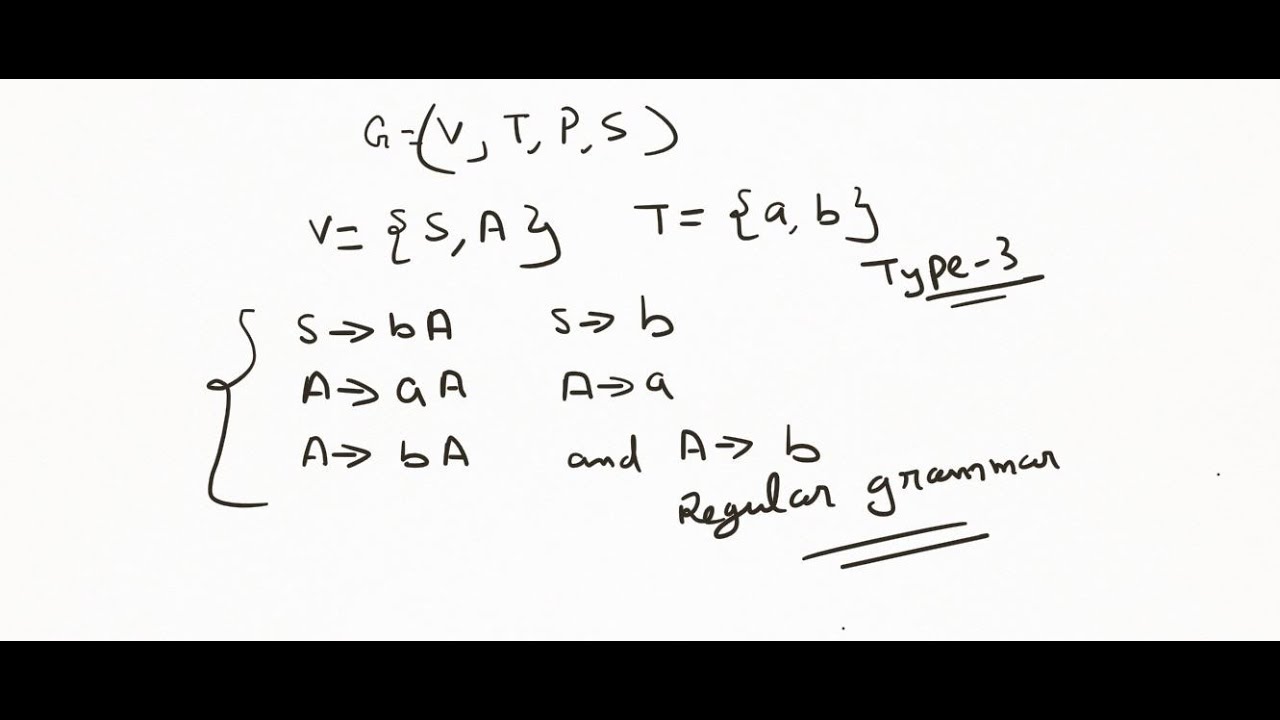 G=(V, T, P, S)
V= {S, A}   T= {a, b}
Type-3
S→bA   S→b
A→aA   A→a
A→bA   and A→b
Regular grammar